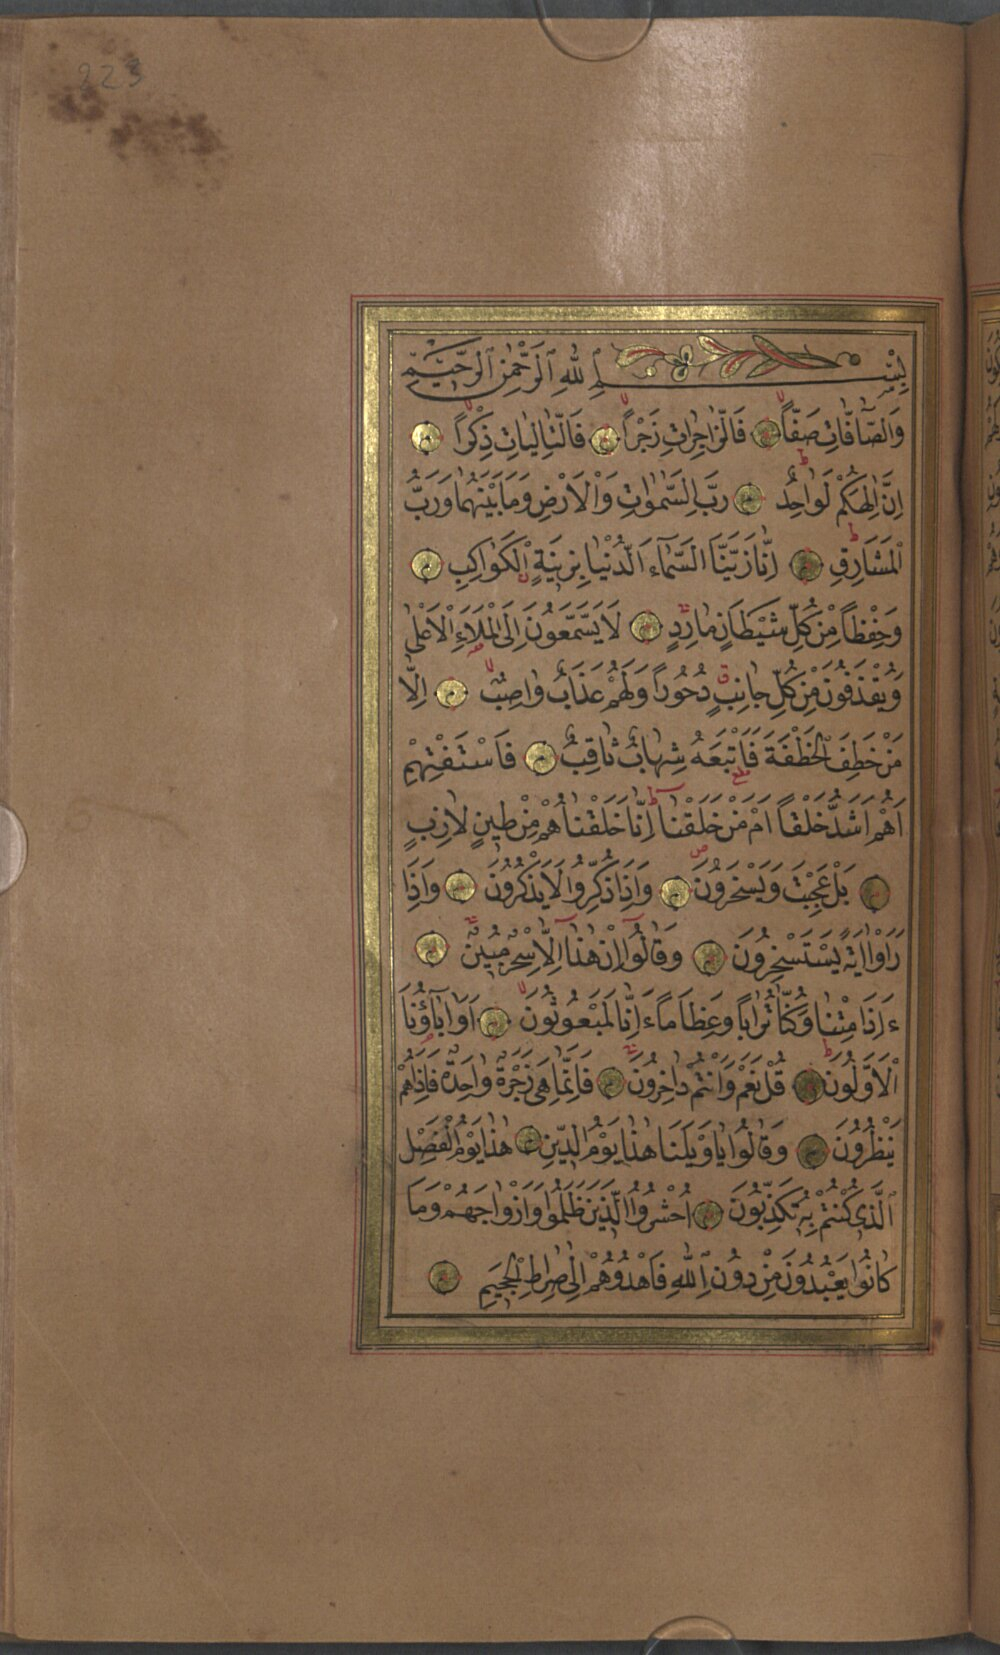 223
بِسْمِ اللهِ الرَّحْمٰنِ الرَّحِيمِ
وَالصَّٓافَّاتِ صَفّاً فَالزَّاجِرَاتِ زَجْراً فَالتَّالِيَاتِ ذِكْراً
اِنَّ اِلٰهَكُمْ لَوَاحِدٌ رَبُّ السَّمٰوَاتِ وَالْاَرْضِ وَمَا بَيْنَهُمَا وَرَبُّ
الْمَشَارِقِ اِنَّا زَيَّنَّا السَّمَٓاءَ الدُّنْيَا بِزِينَةٍ الْكَوَاكِبِ
وَحِفْظاً مِنْ كُلِّ شَيْطَانٍ مَارِدٍ لَا يَسَّمَّعُونَ اِلَى الْمَلَاءِ الْاَعْلٰى
وَيُقْذَفُونَ مِنْ كُلِّ جَانِبٍ دُحُوراً وَلَهُمْ عَذَابٌ وَاصِبٌ اِلَّا
مَنْ خَطِفَ الْخَطْفَةَ فَاَتْبَعَهُ شِهَابٌ ثَاقِبٌ فَاسْتَفْتِهِمْ
اَهُمْ اَشَدُّ خَلْقاً اَمْ مَنْ خَلَقْنَا اِنَّا خَلَقْنَاهُمْ مِنْ طِينٍ لَازِبٍ
بَلْ عَجِبْتَ وَيَسْخَرُونَ وَاِذَا ذُكِّرُوا لَا يَذْكُرُونَ وَاِذَا
رَاَوْا اٰيَةً يَسْتَسْخِرُونَ وَقَالُٓوا اِنْ هٰذَٓا اِلَّا سِحْرٌ مُبِينٌ
ءَاِذَا مِتْنَا وَكُنَّا تُرَاباً وَعِظَاماً ءَاِنَّا لَمَبْعُوثُونَ اَوَاٰبَٓاؤُنَا
الْاَوَّلُونَ قُلْ نَعَمْ وَاَنْتُمْ دَاخِرُونَ فَاِنَّمَا هِيَ زَجْرَةٌ وَاحِدَةٌ فَاِذَا هُمْ
يَنْظُرُونَ وَقَالُوا يَا وَيْلَنَا هٰذَا يَوْمُ الدِّينِ هٰذَا يَوْمُ الْفَصْلِ
الَّذِي كُنْتُمْ بِهِ تُكَذِّبُونَ اُحْشُرُوا الَّذِينَ ظَلَمُوا وَاَزْوَاجَهُمْ وَمَا
كَانُوا يَعْبُدُونَ مِنْ دُونِ اللهِ فَاهْدُوهُمْ اِلٰى صِرَاطِ الْجَحِيمِ